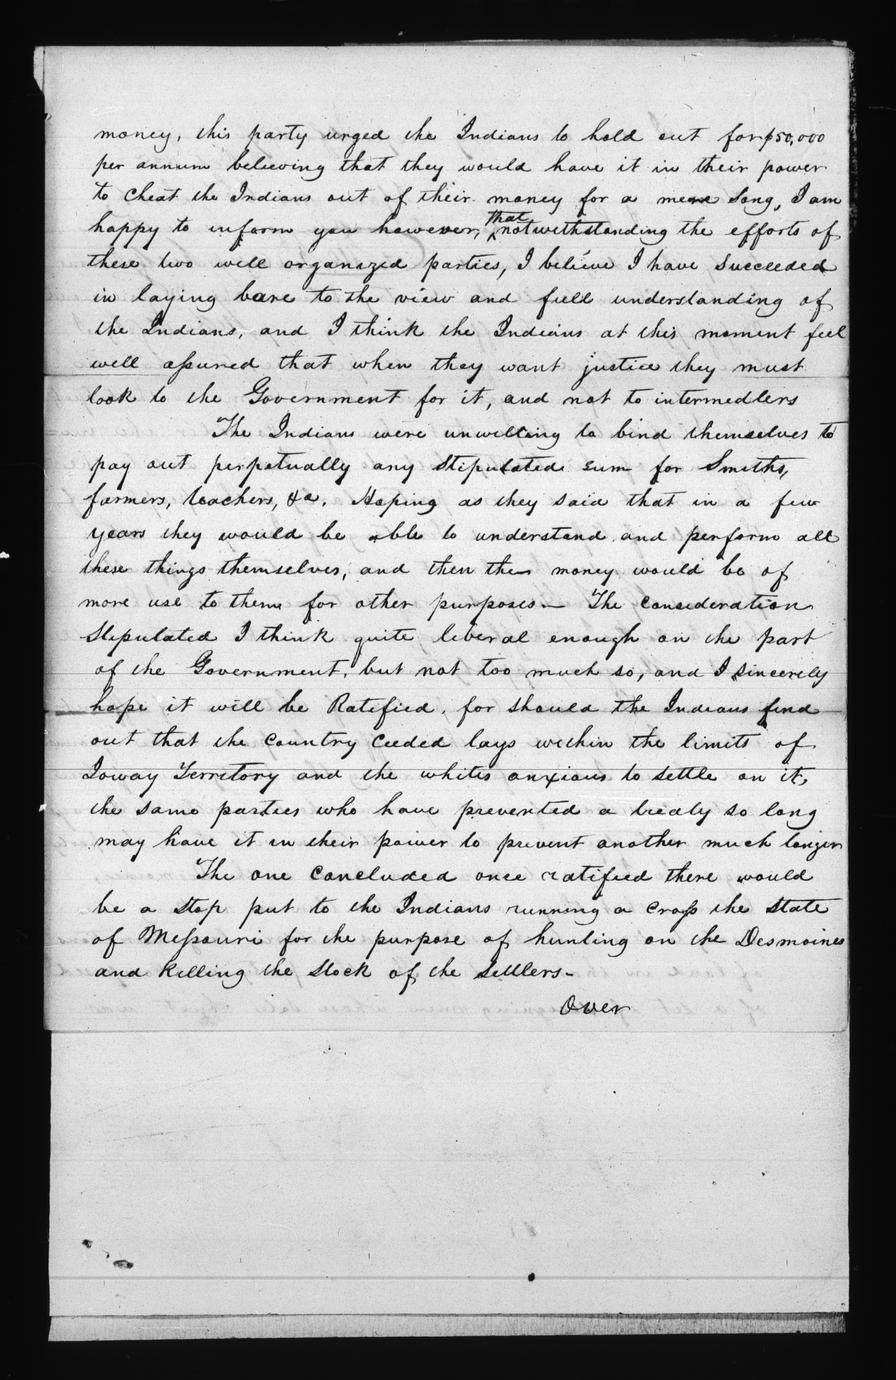 money, this party urged the Indians to hold out for $50,000
per annum believing that they would have it in their power
to cheat the Indians out of their money for a mere Song, I am
happy to inform you however, that notwithstanding the efforts of
these two well organized parties, I believe I have succeeded
in laying bare to the view and full understanding of
the Indians, and I think the Indians at this moment feel
well assured that when they want justice they must
look to the Government for it, and not to intermedlers
The Indians were unwilling to bind themselves to
pay out perpetually any stipulated sum for Smiths,
farmers, teachers, &a. Hoping as they said that in a few
years they would be able to understand and perform all
these things themselves, and then the money would be of
more use to them for other purposes— The consideration
Stipulated I think quite liberal enough on the part
of the Government, but not too much so, and I sincerely
hope it will be Ratified, for should the Indians find
out that the country Ceeded lays within the limits of
Ioway Territory and the whites anxious to settle on it,
the same parties who have prevented a treaty so long
may have it in their power to prevent another much longer
The one concluded once ratified there would
be a stop put to the Indians running a cross the State
of Missouri for the purpose of hunting on the Desmoines
and killing the Stock of the Settlers—
Over